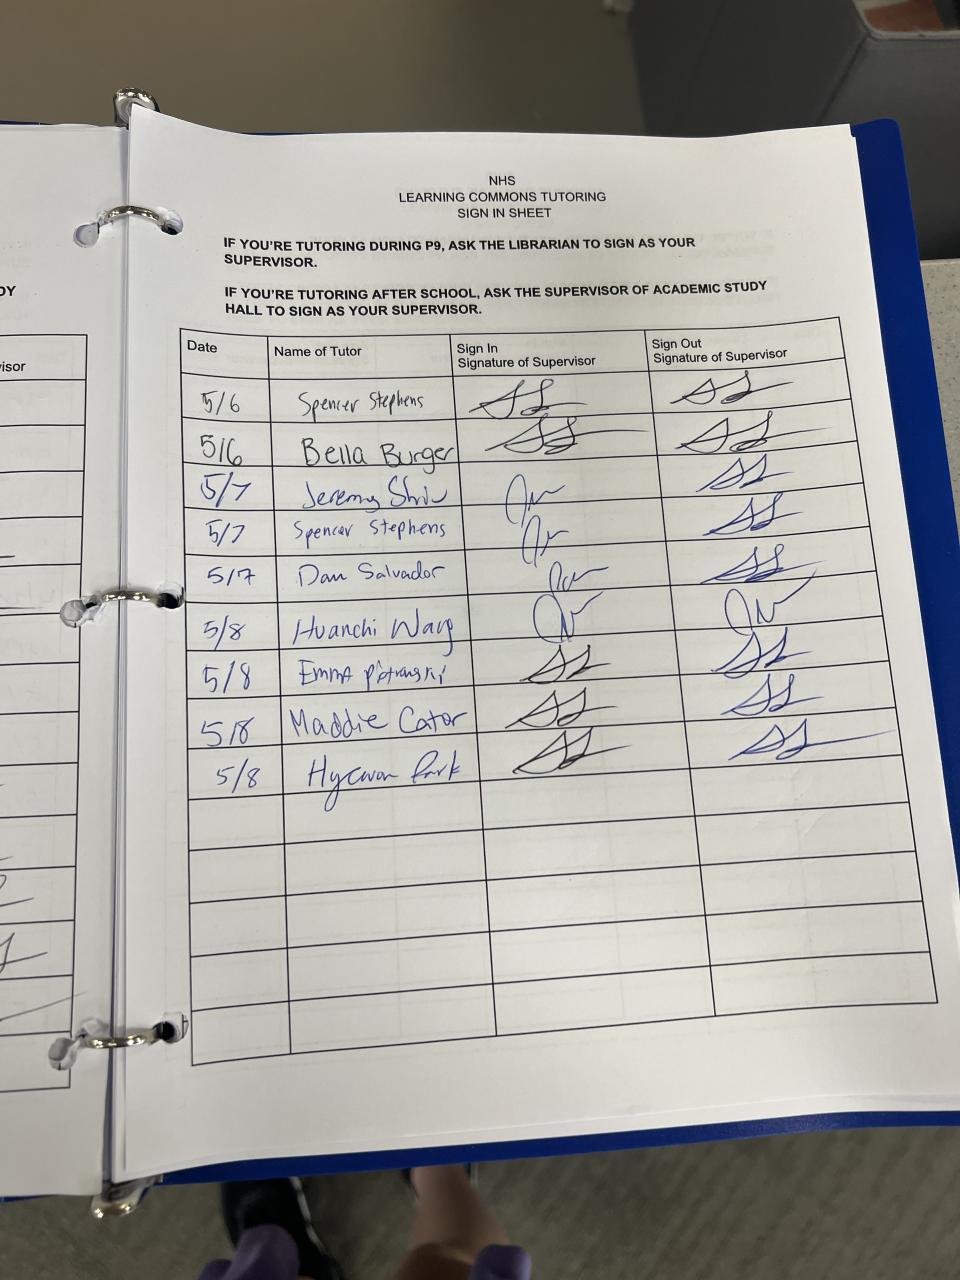 NHS
LEARNING COMMONS TUTORING
SIGN IN SHEET
IF YOU'RE TUTORING DURING P9, ASK THE LIBRARIAN TO SIGN AS YOUR
SUPERVISOR.
IF YOU'RE TUTORING AFTER SCHOOL, ASK THE SUPERVISOR OF ACADEMIC STUDY
HALL TO SIGN AS YOUR SUPERVISOR.
Date Name of Tutor Sign In Sign Out
Signature of Supervisor Signature of Supervisor
5/6 Spencer Stephens
5/6 Bella Burger
5/7 Jeremy
5/7 Spencer Stephens
5/7 Dan Salvador
5/8 Huanchi Wang
5/8 Emma
5/8 Maddie Cator
5/8 Park
DY
isor